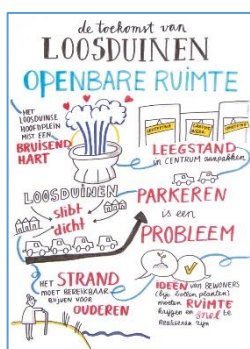 de toekomst van
LOOSDUINEN
OPENBARE RUIMTE
HET
LOOSDUINSE
HOOFDPLEIN
MIST EEN
BRUISEND
HART
LEEGSTAND
in CENTRUM aanpakken
LOOSDUINEN
slibt
dicht
PARKEREN
is een
PROBLEEM
HET STRAND
MOET BEREIKBAAR
BLIJVEN VOOR
OUDEREN
IDEEËN van BEWONERS
(bijv. bollen planten)
moeten RUIMTE
krijgen en snel te
realiseren zijn